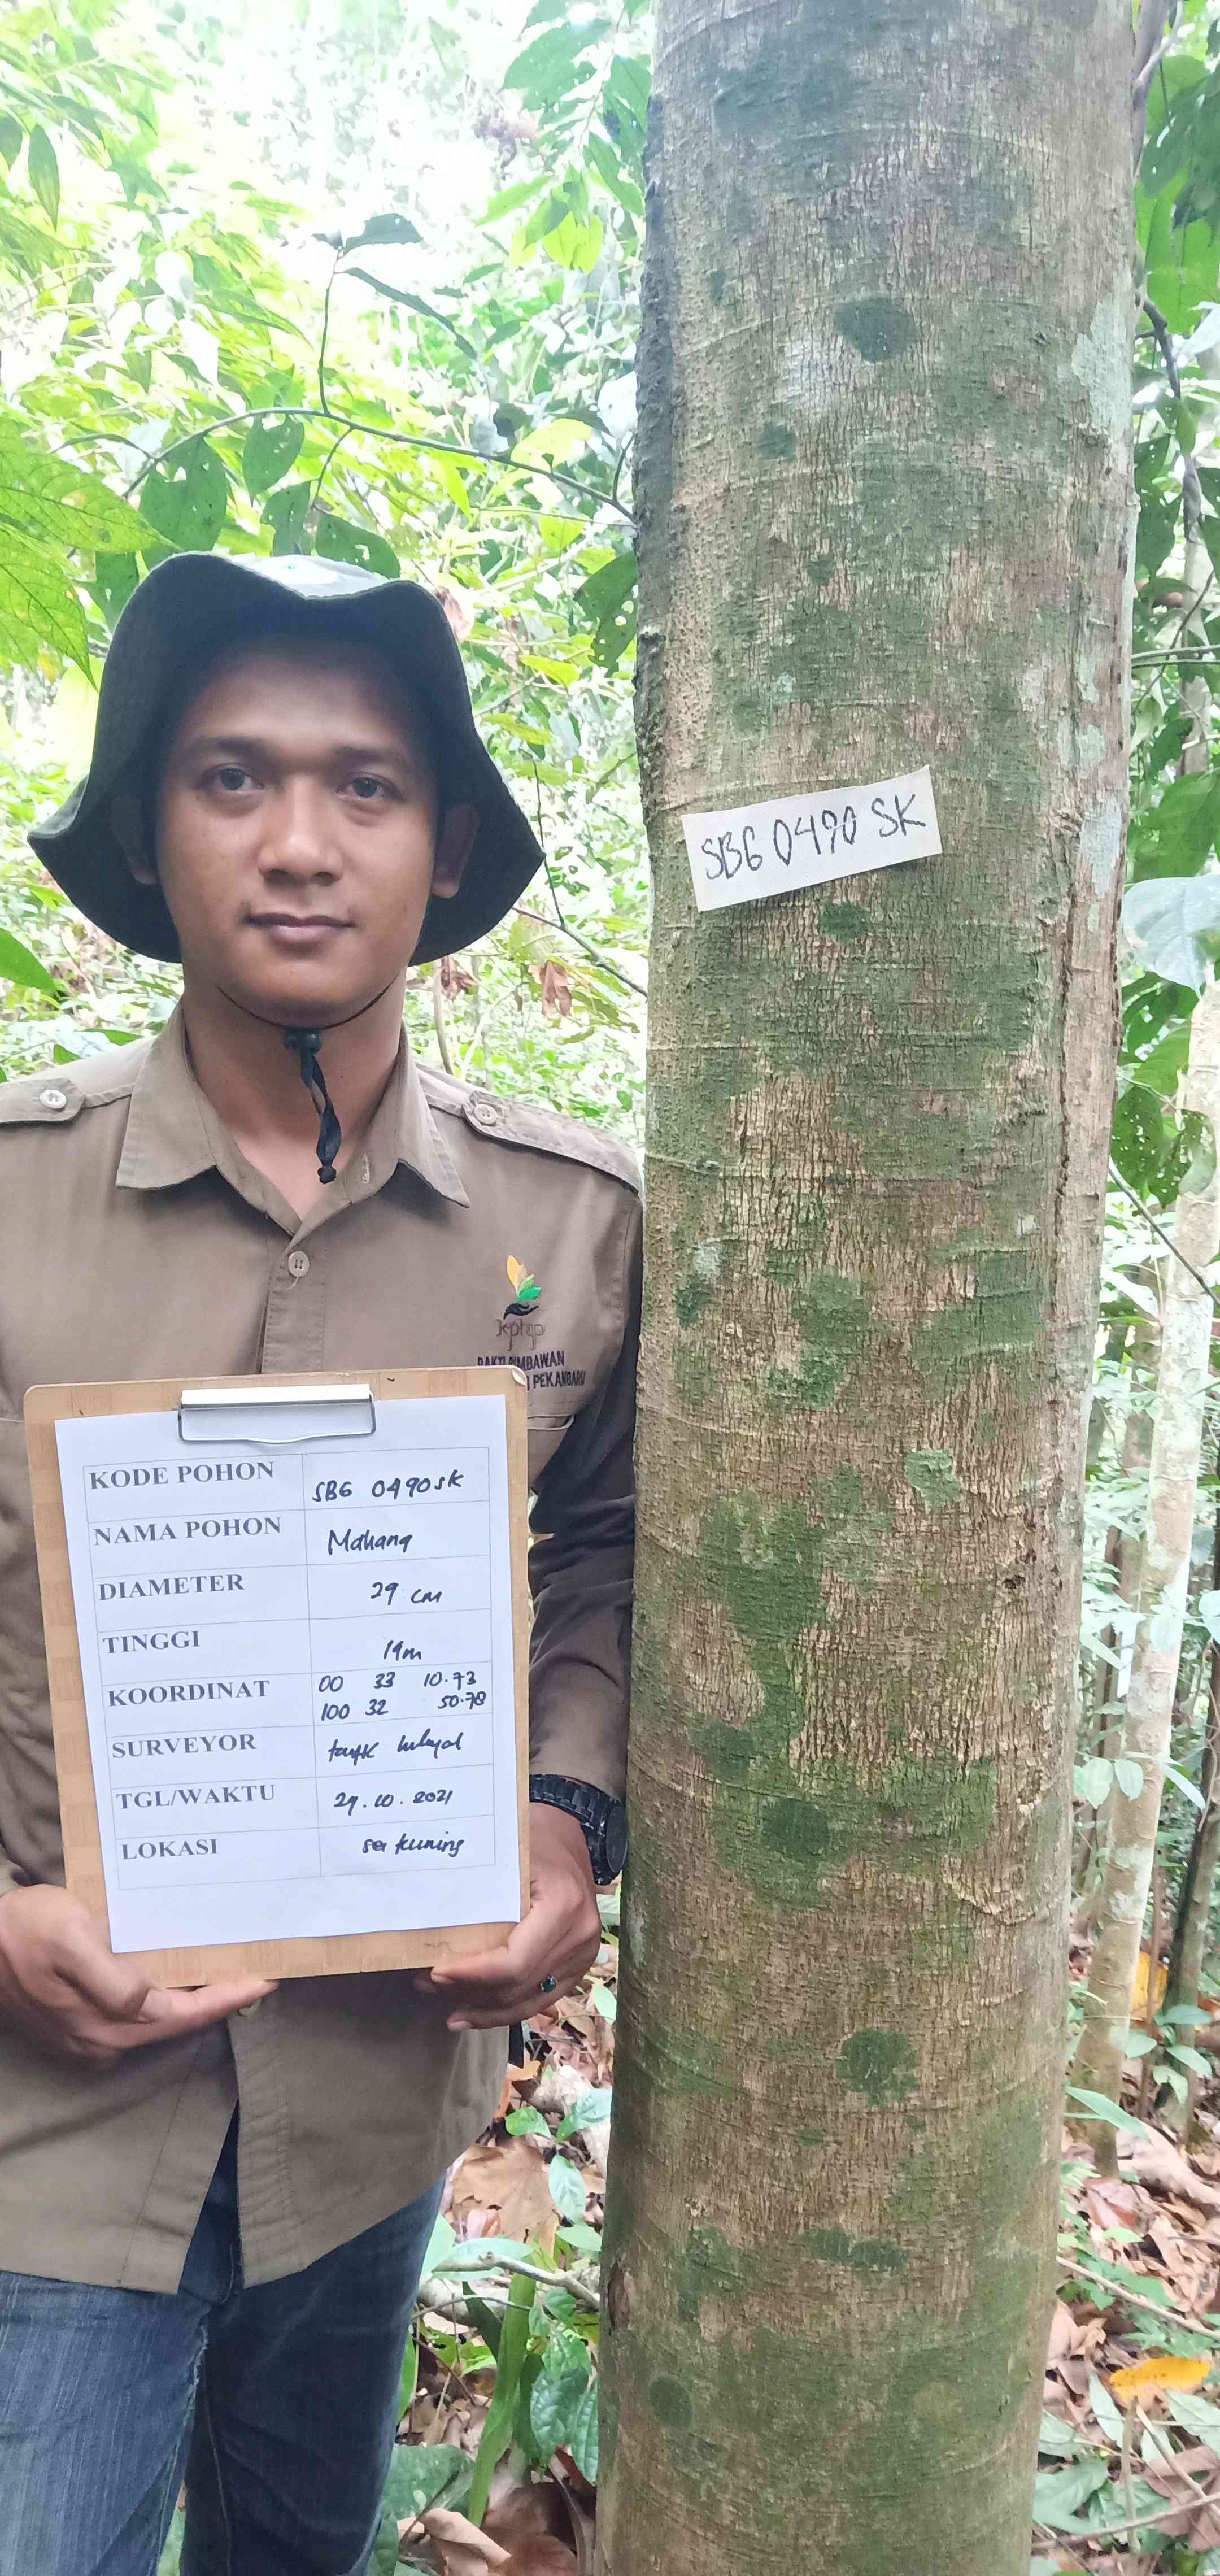 SBG 0490 SK
kphp
BAKTI RIMBAWAN
PEKANBARU
KODE POHON SBG 0490SK
NAMA POHON Mahang
DIAMETER 29 cm
TINGGI 19m
KOORDINAT 00 33 10.73
100 32 50.78
SURVEYOR taufik
TGL/WAKTU 29.10.2021
LOKASI sei kuning